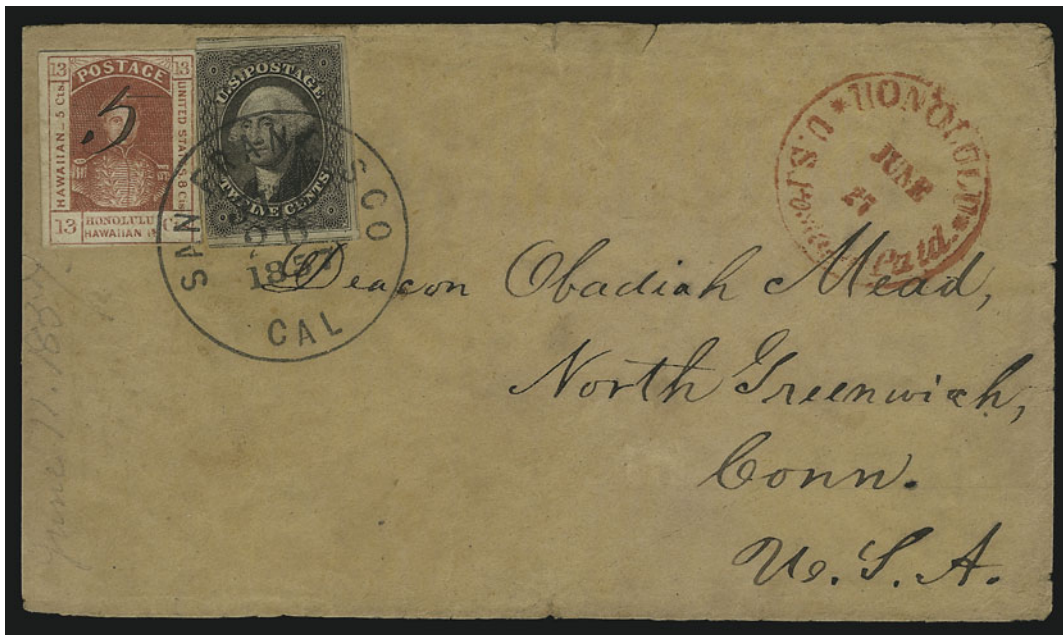 13 POSTAGE 13
HAWAIIAN – 5 Cts.
UNITED STATES 8 Cts.
5
13 HONOLULU
HAWAIIAN
U.S. POSTAGE
TWELVE CENTS
SAN FRANCISCO
20
1857
CAL
HONOLULU
U.S. Postage Paid.
JUNE
27
Deacon Obadiah Mead,
North Greenwich,
Conn.
U. S. A.